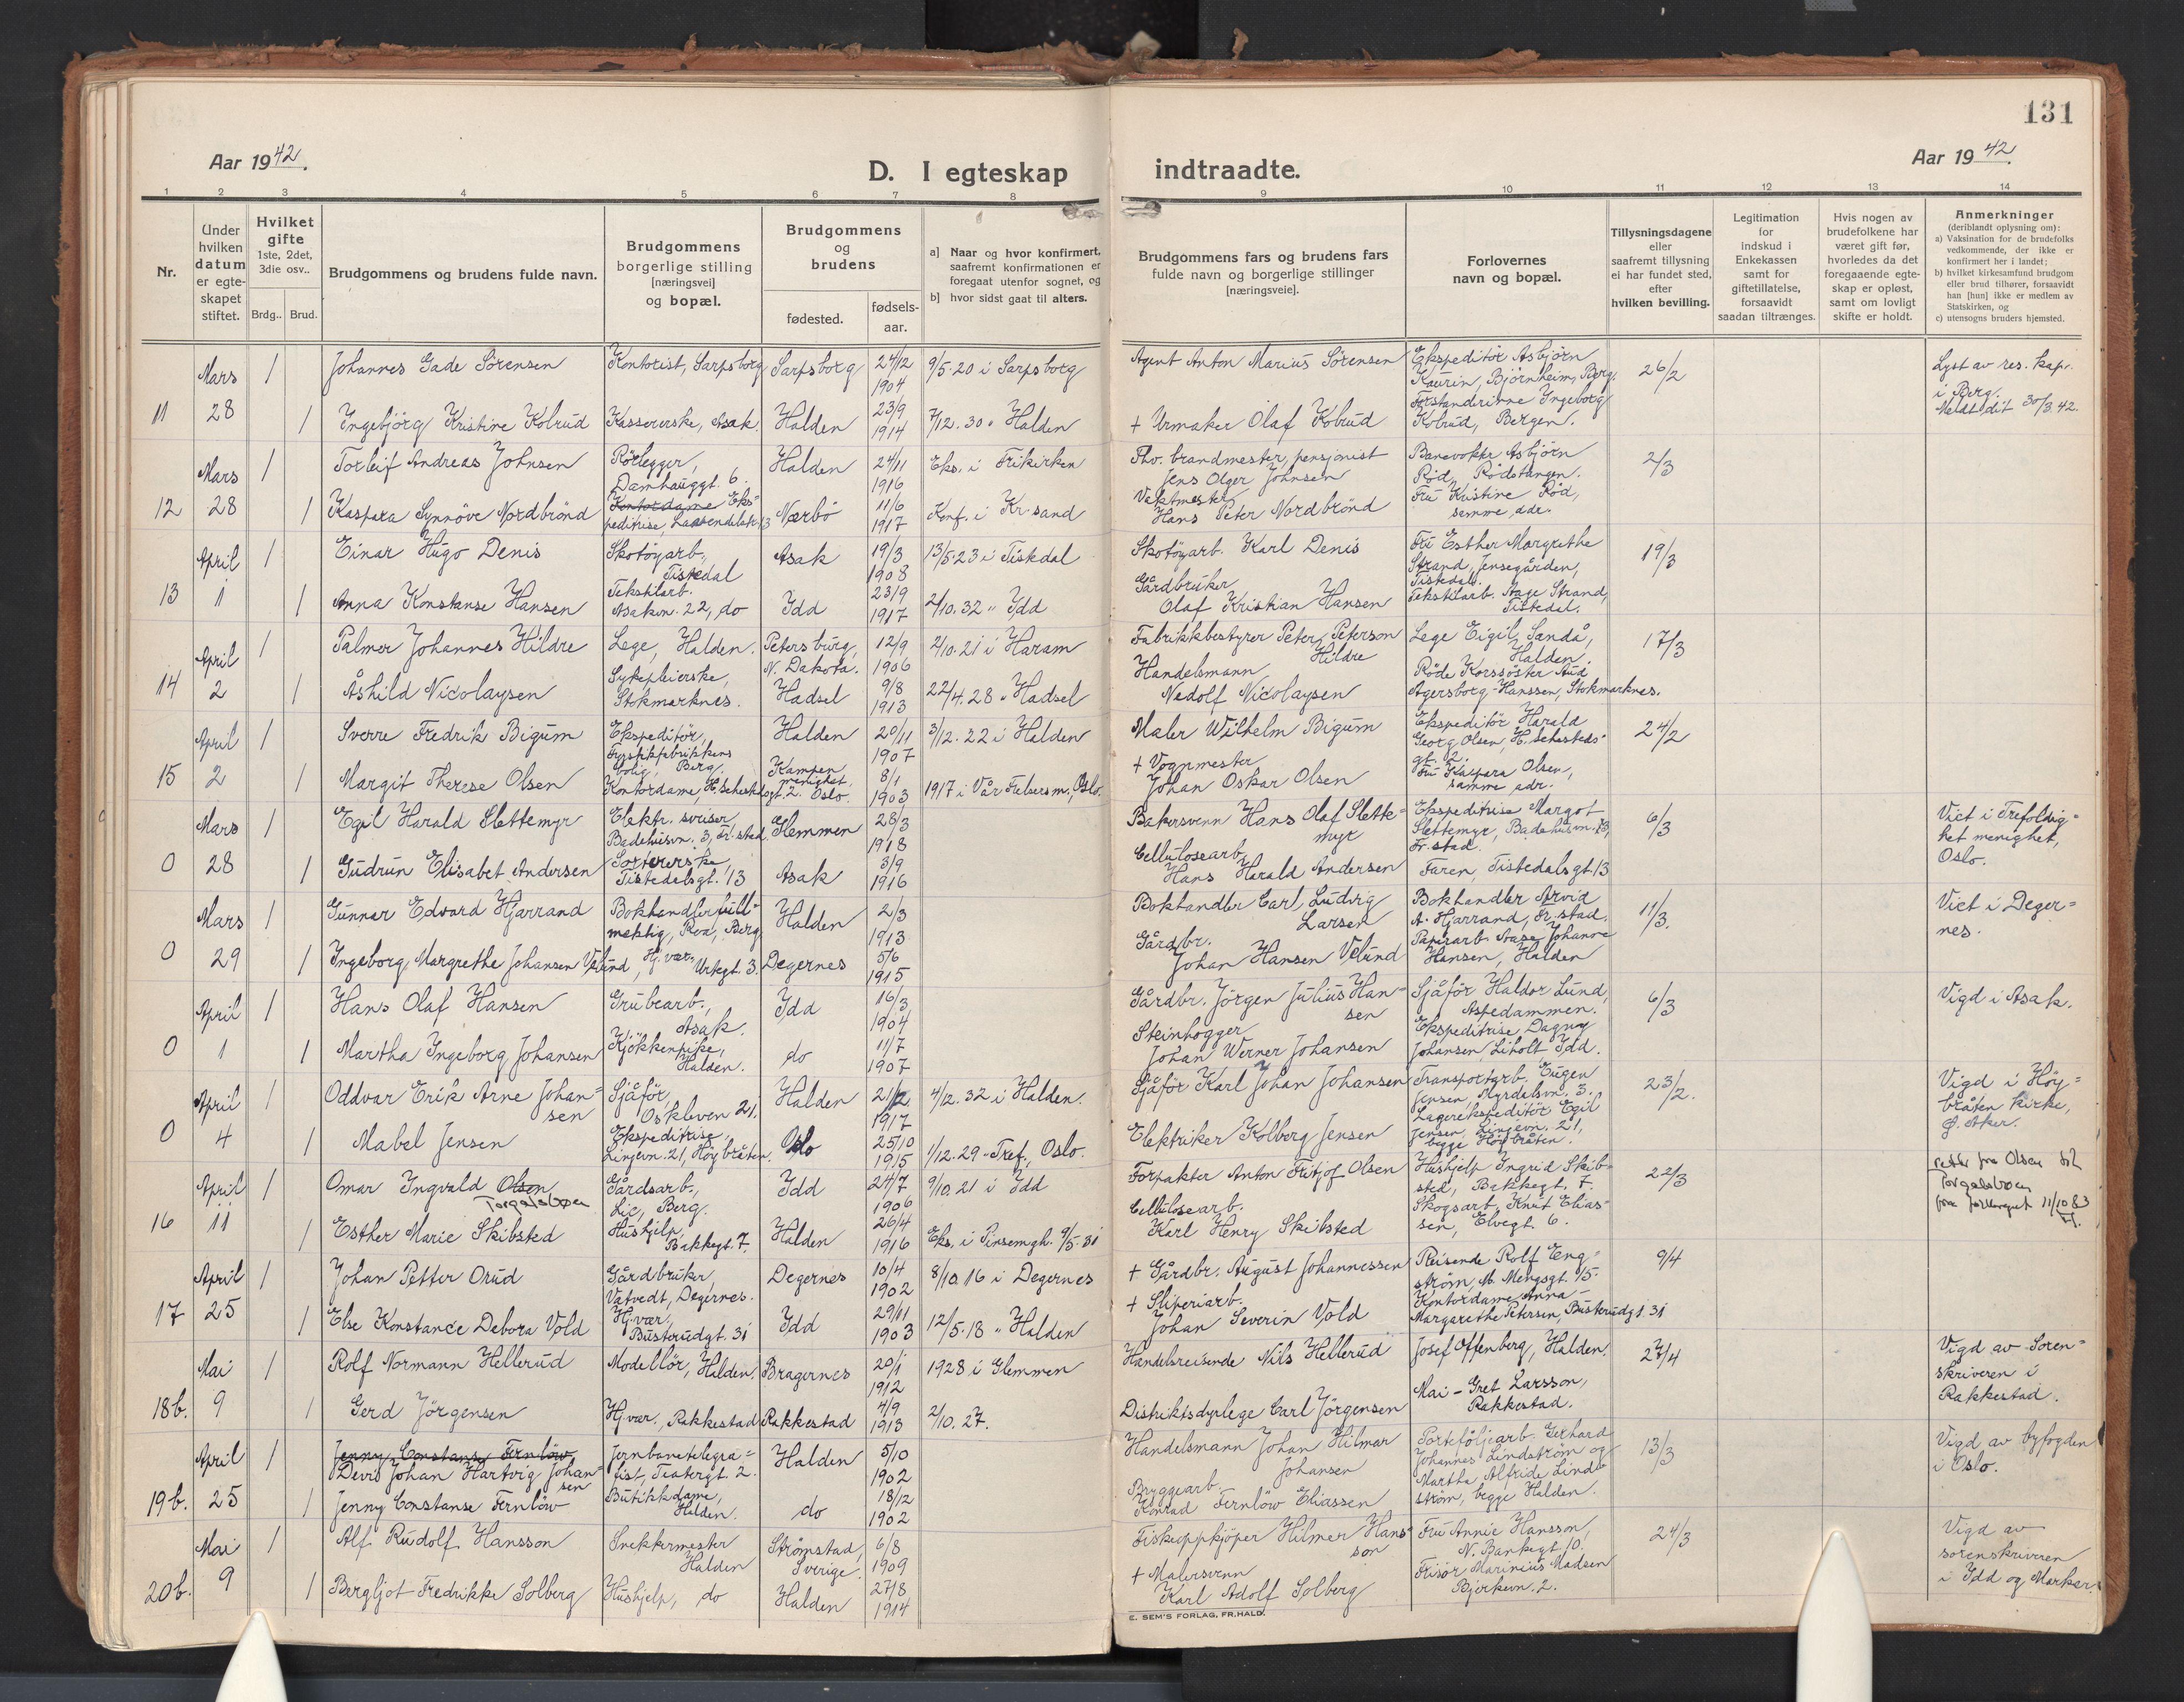 131
Aar 1942.
D. I egteskap indtraadte.
Aar 1942.
1 2 3 4 5 6 7 8 9 10 11 12 13 14
Nr.
Under hvilken datum er egte-skapet stiftet.
Hvilket gifte 1ste, 2det, 3die osv..
Brdg.. Brud.
Brudgommens og brudens fulde navn.
Brudgommens borgerlige stilling [næringsvei] og bopæl.
Brudgommens og brudens
fødested.
fødsels-aar.
a] Naar og hvor konfirmert, saafremt konfirmationen er foregaat utenfor sognet, og
b] hvor sidst gaat til alters.
Brudgommens fars og brudens fars fulde navn og borgerlige stillinger [næringsveie].
Forlovernes navn og bopæl.
Tillysningsdagene eller saafremt tillysning ei har fundet sted, efter hvilken bevilling.
Legitimation for indskud i Enkekassen samt for giftetillatelse, forsaavidt saadan tiltrænges.
Hvis nogen av brudefolkene har været gift før, hvorledes da det foregaaende egte-skap er opløst, samt om lovligt skifte er holdt.
Anmerkninger (deriblandt oplysning om):
a) Vaksination for de brudefolks vedkommende, der ikke er konfirmert her i landet;
b) hvilket kirkesamfund brudgom eller brud tilhører, forsaavidt han [hun] ikke er medlem av Statskirken, og
c) utensogns bruders hjemsted.
Mars 1 Johannes Gade Sörensen Kontorist, Sarpsborg Sarpsborg 24/12 1904 9/5.20 i Sarpsborg Agent Anton Marius Sörensen Ekspeditör Asbjörn Kaurin, Björnheim, Berg. 26/2 Lyst av res. kap. i Berg. Meldt dit 30/3.42.
11 28 1 Ingebjörg Kristine Kolrud Kassererske, Asak. Halden 23/9 1914 7/12.30 " Halden + Urmaker Olaf Kolrud Forstanderinne Ingeborg Kolrud, Bergen.
Mars 1 Torleif Andreas Johnsen Rörlegger, Damhauggt. 6. Halden 24/11 1916 Eks. i Frikirken Fhv. brandmester, pensjonist Jens Olger Johnsen Banevokter Asbjörn Röd, Rödstangen. 2/3
12 28 1 Kaspara Synnöve Nordbrönd Kontordame Eks=peditrise, Nærbö 11/6 1917 Konf. i Kr.sand Vaktmester Hans Peter Nordbrönd Fru Kristine Röd, samme adr.
April 1 Einar Hugo Denis Skotöyarb., Tistedal Asak 19/3 1908 13/5.23 i Tistedal Skotöyarb. Karl Denis Fru Esther Margrethe Strand, Jensegården, Tistedal. 19/3
13 1 1 Anna Konstanse Hansen Tekstilarb. Asakvn. 22, do Idd 23/9 1917 2/10.32 " Idd Gårdbruker Olaf Kristian Hansen Tekstilarb. Aage Strand, Tistedal.
April 1 Palmer Johannes Hildre Lege, Halden. Petersburg, N. Dakota. 12/9 1906 2/10.21 i Haram Fabrikkbestyrer Peter Peterson Hildre Lege Eigil Sandå, Halden. 17/3
14 2 1 Åshild Nicolaysen Sykepleierske, Stokmarknes. Hadsel 9/8 1913 22/4.28 " Hadsel Handelsmann Nedolf Nicolaysen Röde Korssöster Aud Agersborg-Hanssen, Stokmarknes.
April 1 Sverre Fredrik Bigum Ekspeditör, Fyrstikkfabrikkens bolig, Berg. Halden 20/11 1907 3/12.22 i Halden Maler Wilhelm Bigum Ekspeditör Harald Georg Olsen, H. Sehesteds gt. 2. 24/2
15 2 1 Margit Therese Olsen Kontordame, H. Sehestedsgt. 2. Kampen menighet, Oslo. 8/1 1903 1917 i Vår Frelsers m., Oslo. + Vognmester Johan Oskar Olsen Fru Kaspara Olsen, samme adr.
Mars 1 Egil Harald Slettemyr Elektr. sveiser Badehusvn. 3, Fr.stad. Glemmen 28/3 1918 Bakersvenn Hans Olaf Slette=myr Ekspeditrise Margot Slettemyr, Badehusvn. 13, Fr.stad. 6/3 Viet i Trefoldig=het menighet, Oslo.
0 28 1 Gudrun Elisabet Andersen Sortererske, Tistedalsgt. 13 Asak 3/9 1916 Cellulosearb. Hans Harald Andersen Faren, Tistedalsgt. 13
Mars 1 Gunnar Edvard Hjarrand Bokhandlerfull=mektig, Roa, Berg Halden 2/3 1913 Bokhandler Carl Ludvig Larsen Bokhandler Arvid A. Hjarrand, Fr.stad. 11/3. Viet i Deger=nes.
0 29 1 Ingeborg Margrethe Johansen Velund, Hj.vær. Urtegt. 3. Degernes 5/6 1915 Gårdbr. Johan Hansen Velund Papirarb. Aase Johanne Hansen, Halden
April 1 Hans Olaf Hansen Grubearb., Asak. Idd 16/3 1904 Gårdbr. Jörgen Julius Han=sen Sjåför Haldor Lund, Aspedammen. 6/3 Vigd i Asak.
0 1 1 Martha Ingeborg Johansen Kjökkenpike, Halden. do 11/7 1907 Steinhogger Johan Werner Johansen Ekspeditrise Dagny Johansen, Liholt, Idd.
April 1 Oddvar Erik Arne Johan=sen Sjåför, Oskleven 21. Halden 21/12 1917 4/12.32 i Halden. Sjåför Karl Johan Johansen Transportarb. Eugen Jensen, Myrdalsvn. 3. 23/2. Vigd i Höy=bråten kirke, Ö. Aker.
0 4 1 Mabel Jensen Ekspeditrise, Linjevn. 21, Höybråten. Oslo 25/10 1915 1/12.29 " Tref., Oslo. Elektriker Kolberg Jensen Lagerekspeditör Egil Jensen, Linjevn. 21, begge Höybråten.
April 1 Omar Ingvald Olsen Torgalsböen Gårdsarb., Lie, Berg. Idd 24/7 1906 9/10.21 i Idd Forpakter Anton Fritjof Olsen Hushjelp Ingrid Skib=sted, Bakkegt. 7. 22/3 rettet fra Olsen til Torgalsböen 11/10 83
16 11 1 Esther Marie Skibsted Hushjelp, Bakkegt. 7. Halden 26/4 1916 Eks. i Pinsemgh. 9/5.31 Cellulosearb. Karl Henry Skibsted Skogsarb. Knut Elias=sen, Elvegt. 6.
April 1 Johan Petter Orud Gårdbruker, Vatvedt, Degernes. Degernes 10/4 1902 8/10.16 i Degernes + Gårdbr. August Johannessen Reisende Rolf Eng=ström, M. Mengsgt. 9/4
17 25 1 Else Konstance Debora Vold Hj.vær. Busterudgt. 31 Idd 29/11 1903 12/5.18 " Halden + Sliperiarb. Johan Severin Vold Kontordame Anna-Margarethe Petersen, Busterudgt. 31
Mai 1 Rolf Normann Hellerud Modellör, Halden. Bragernes 20/1 1912 1928 i Glemmen Handelsreisende Nils Hellerud Josef Offenberg, Halden. 27/4 Vigd av Soren=skriveren i Rakkestad.
18b. 9 1 Gerd Jörgensen Hj.vær., Rakkestad Rakkestad 4/9 1913 2/10.27. Distriktsdyrlege Carl Jörgensen Mai-Gret Larsson, Rakkestad.
April 1 Jenny Constanse Fernlöw Johan Hartvig Johan=sen Jernbanetelegra=fist, Teatergt. 2. Halden 5/10 1902 Handelsmann Johan Hilmar Johansen Porteföljearb. Gerhard Johannes Lindström og 13/3 Vigd av byfogden i Oslo.
19b. 25 1 Jenny Constanse Fernlöw Butikkdame, Halden. do 18/12 1902 Bryggearb. Konrad Fernlöw Eliassen Martha Alfride Lind=ström, begge Halden.
Mai 1 Alf Rudolf Hansson Snekkermester Halden Strømstad, Sverige. 6/8 1909 Fiskeoppkjöper Hilmer Hans=son Fru Annie Hansson, N. Bankegt 10. 24/3 Vigd av sorenskriveren i Idd og Marker.
20b. 9 1 Bergljot Fredrikke Solberg Hushjelp, do Halden 27/8 1914 + Malersvenn Karl Adolf Solberg Frisör Marinius Madsen Bjerkevn. 2.
E. SEM'S FORLAG, FR.HALD.